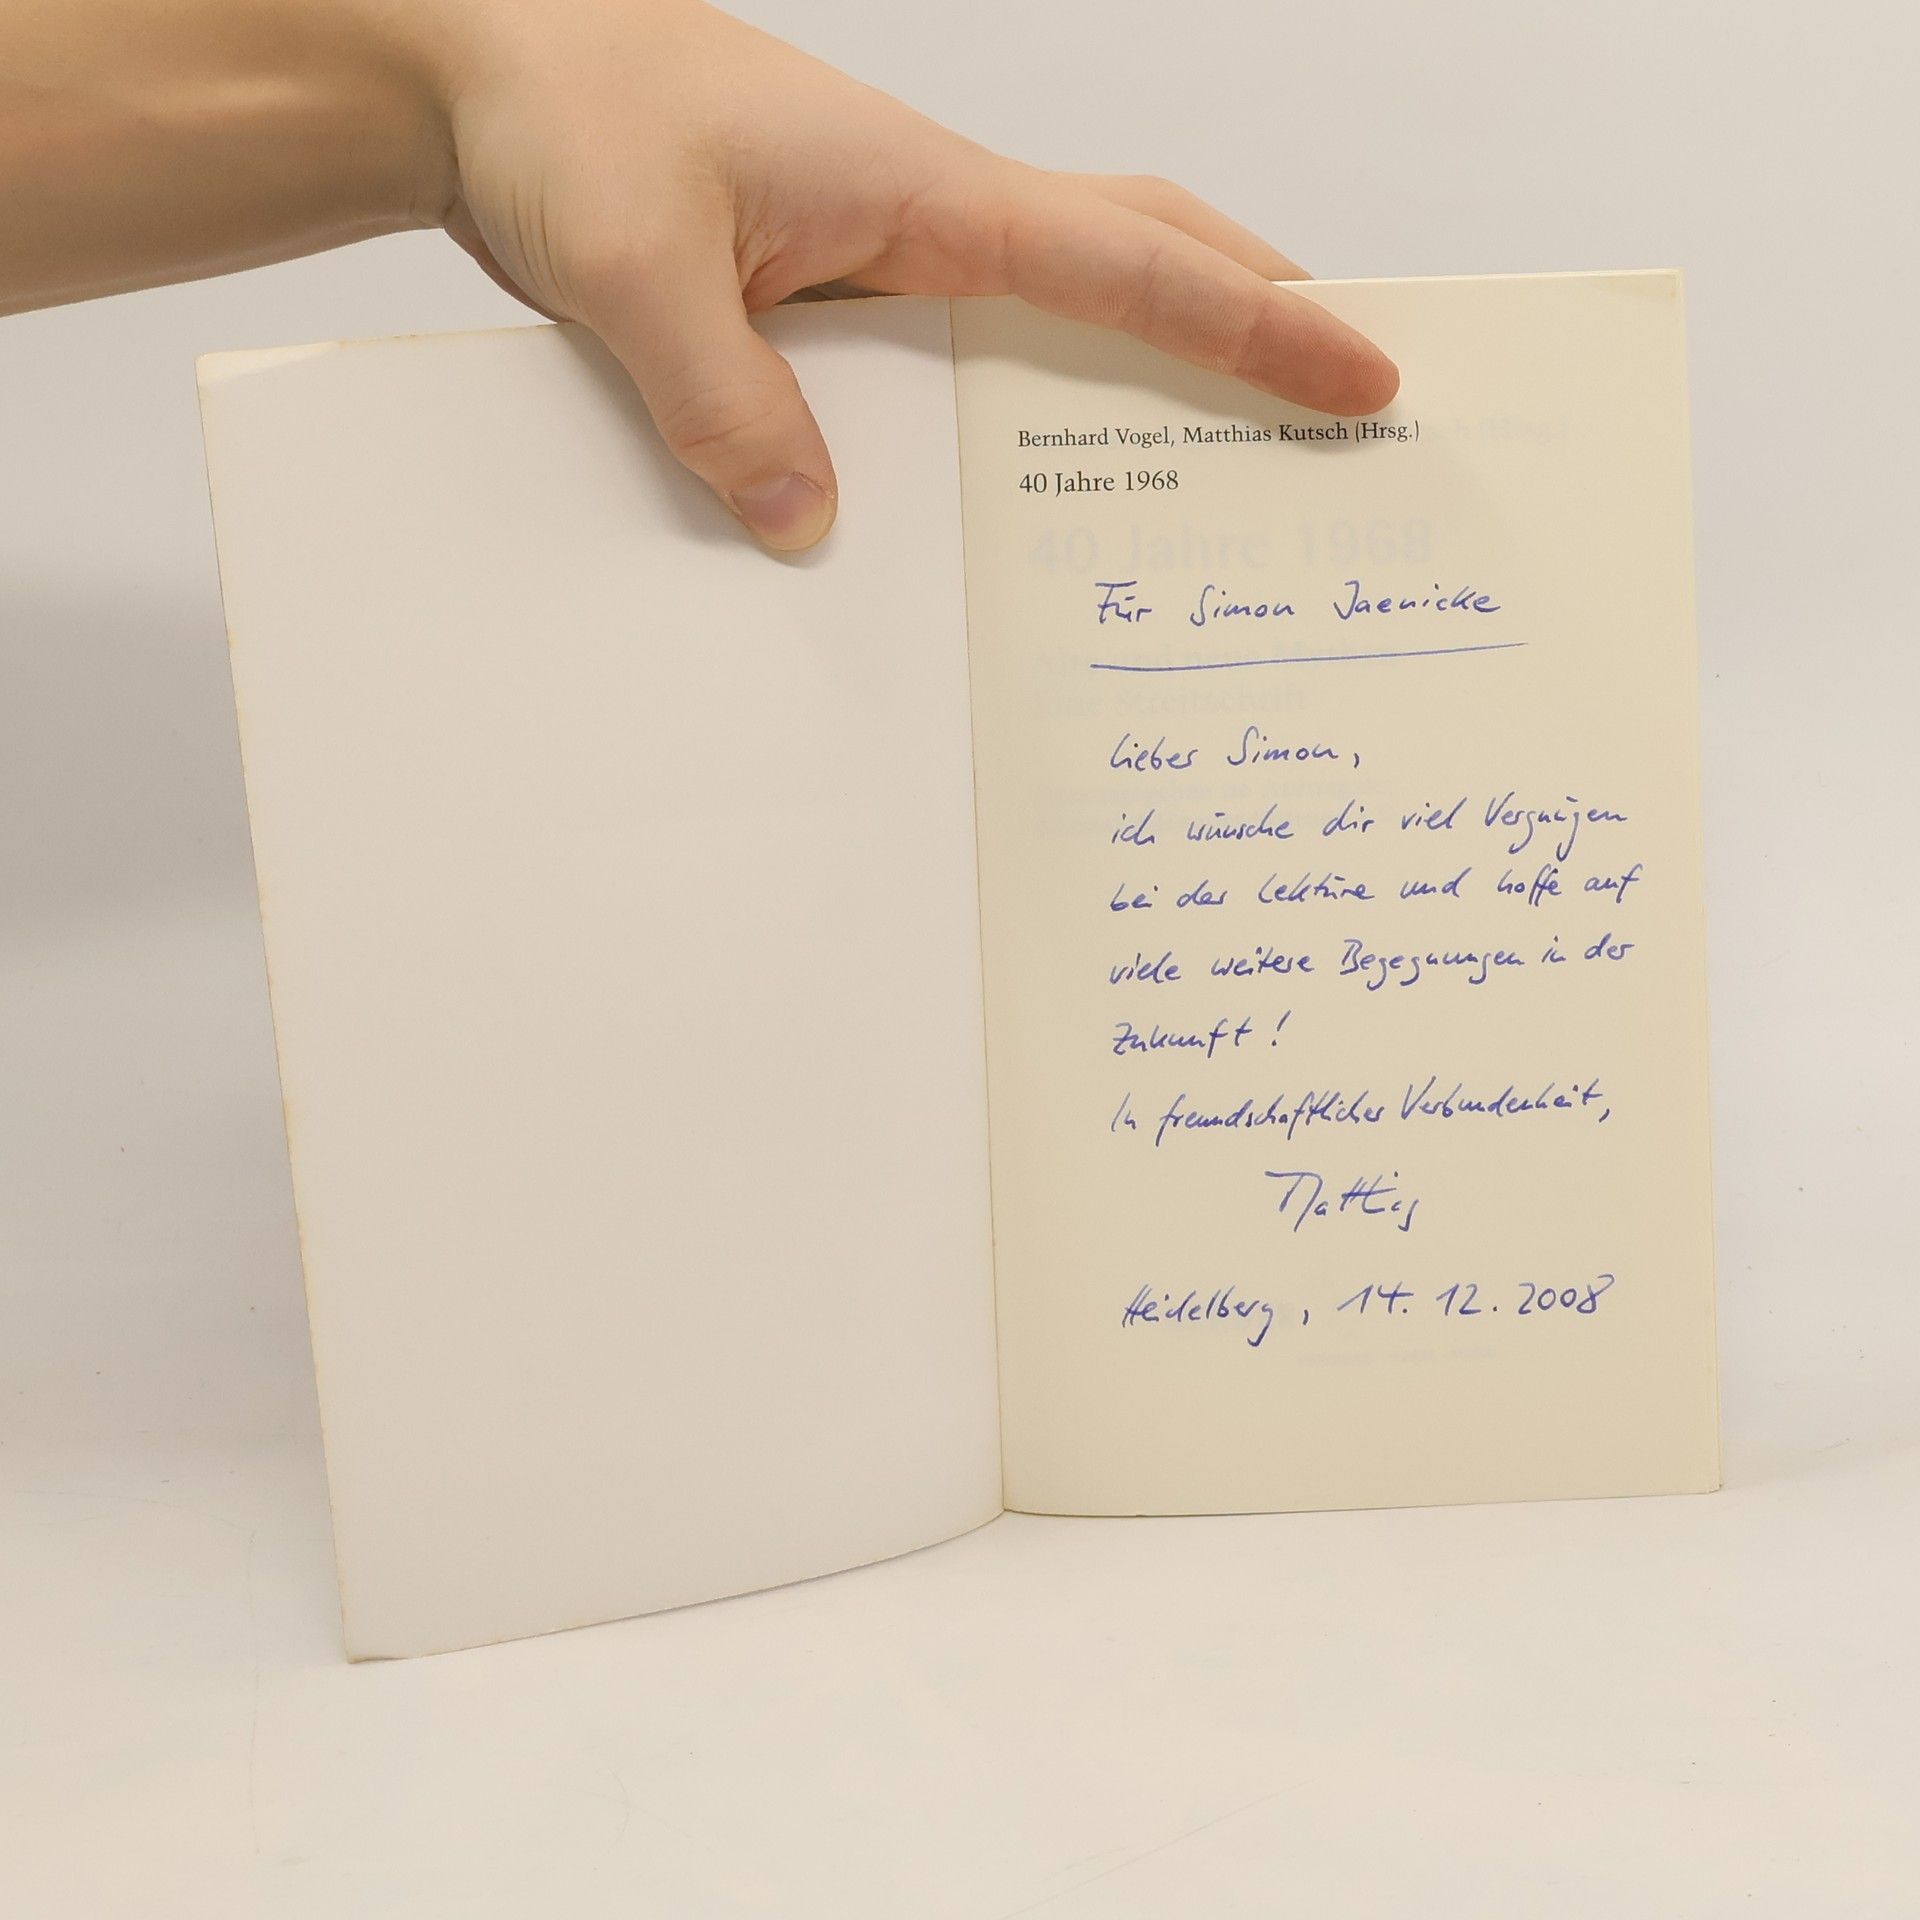 Bernhard Vogel, Matthias Kutsch (Hrsg.)
40 Jahre 1968
40 Jahre 1968
Eine Streitschrift
Für Simon Jaenicke
Lieber Simon,
ich wünsche dir viel Vergnügen
bei der Lektüre und hoffe auf
viele weitere Begegnungen in der
Zukunft!
In freundschaftlicher Verbundenheit,
Matthias
Heidelberg, 14. 12. 2008